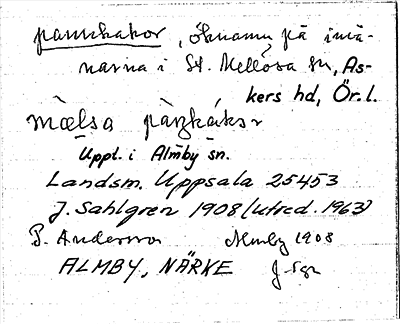 pannkakor, öknamn på invå-
narna i St. Mellösa sn, As-
kers hd, Ör.l.
mælsa pàŋkákər
Uppt. i Almby sn.
Landsm. Uppsala 25453
J. Sahlgren 1908 (utred. 1963)
P. Andersson Almby 1908
ALMBY, NÄRKE J. Sgn